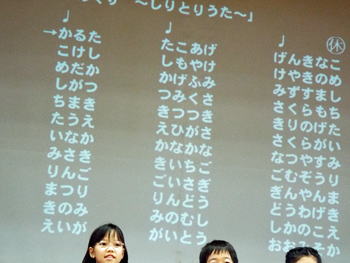 ～しりとりうた～」
♩
→かるた
こけし
めだか
しがつ
ちまき
たうえ
いなか
みさき
りんご
まつり
きのみ
えいが
♩
たこあげ
しもやけ
かげふみ
つみくさ
きつつき
えひがさ
かなかな
きいちご
ごいさぎ
りんどう
みのむし
がいとう
♩
休
げんきなこ
けやきのめ
みずすまし
さくらもち
きりのげた
さくらがい
なつやすみ
ごむぞうり
ぎんやんま
どうわげき
しかのこえ
おおみそか